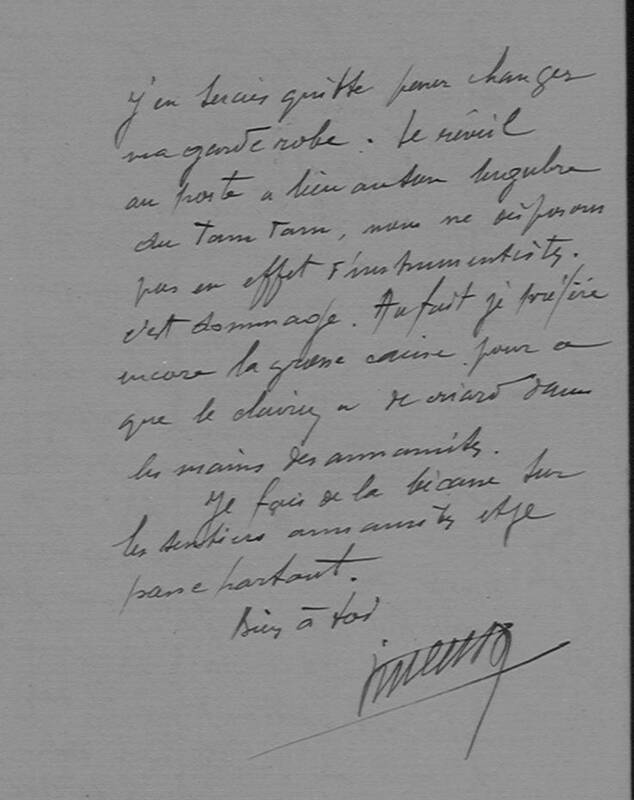 j'en serais quitte pour changer
ma garde robe. Le réveil
au poste a lieu au son lugubre
du Tam Tam, nous ne disposons
pas en effet d'instrumentistes.
c'est dommage. Au fait je préfère
encore la grosse caisse pour ce
que le clairon a de criard dans
les mains des annamites.
Je fais de la bécane sur
les sentiers annamites et je
passe partout.
Bien à toi